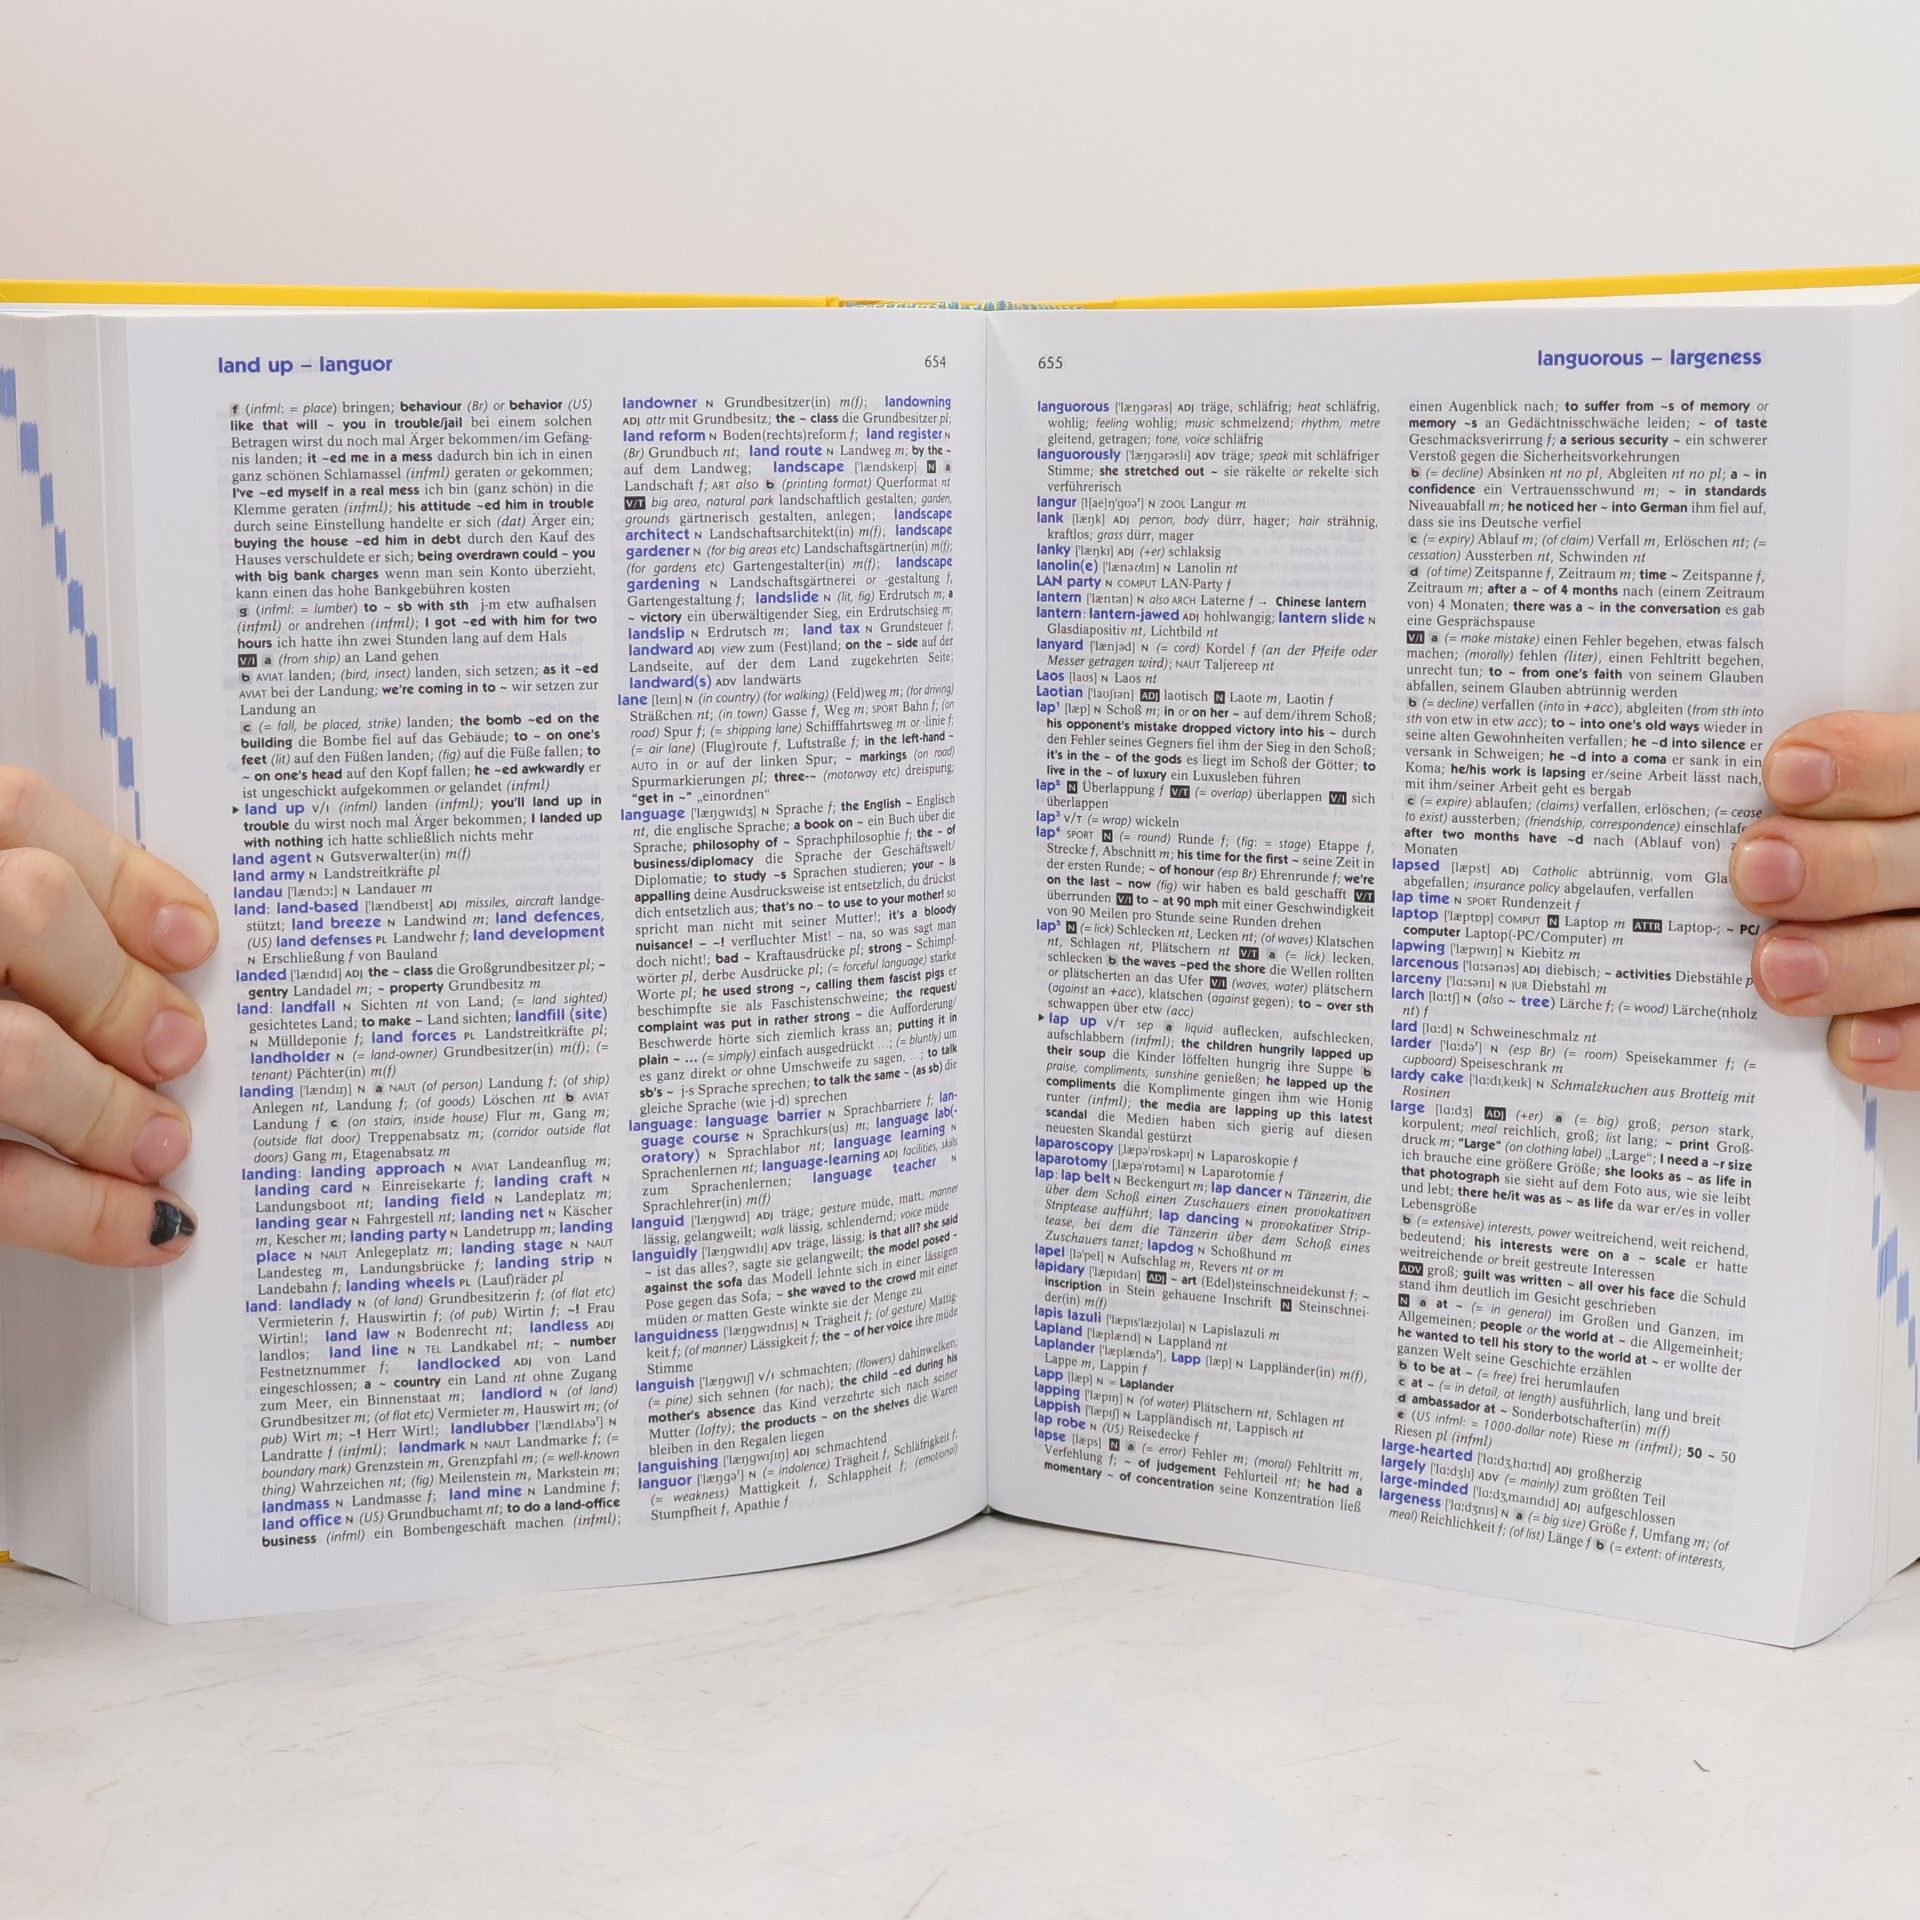 land up – languor 654
f (infml: = place) bringen; behaviour (Br) or behavior (US)
like that will ~ you in trouble/jail bei einem solchen
Betragen wirst du noch mal Ärger bekommen/im Gefäng-
nis landen; it ~ed me in a mess dadurch bin ich in einen
ganz schönen Schlamassel (infml) geraten or gekommen;
I've ~ed myself in a real mess ich bin (ganz schön) in die
Klemme geraten (infml); his attitude ~ed him in trouble
durch seine Einstellung handelte er sich (dat) Ärger ein;
buying the house ~ed him in debt durch den Kauf des
Hauses verschuldete er sich; being overdrawn could ~ you
with big bank charges wenn man sein Konto überzieht,
kann einen das hohe Bankgebühren kosten
g (infml: = lumber) to ~ sb with sth j-m etw aufhalsen
(infml) or andrehen (infml); I got ~ed with him for two
hours ich hatte ihn zwei Stunden lang auf dem Hals
V/I a (from ship) an Land gehen
b AVIAT landen; (bird, insect) landen, sich setzen; as it ~ed
AVIAT bei der Landung; we're coming in to ~ wir setzen zur
Landung an
c (= fall, be placed, strike) landen; the bomb ~ed on the
building die Bombe fiel auf das Gebäude; to ~ on one's
feet (lit) auf den Füßen landen; (fig) auf die Füße fallen; to
~ on one's head auf den Kopf fallen; he ~ed awkwardly er
ist ungeschickt aufgekommen or gelandet (infml)
▸ land up V/I (infml) landen (infml); you'll land up in
trouble du wirst noch mal Ärger bekommen; I landed up
with nothing ich hatte schließlich nichts mehr
land agent N Gutsverwalter(in) m(f)
land army N Landstreitkräfte pl
landau ['lændɔː] N Landauer m
land: land-based ['lændbeɪst] ADJ missiles, aircraft landge-
stützt; land breeze N Landwind m; land defences,
(US) land defenses PL Landwehr f; land development
N Erschließung f von Bauland
landed ['lændɪd] ADJ the ~ class die Großgrundbesitzer pl; ~
gentry Landadel m; ~ property Grundbesitz m
land: landfall N Sichten nt von Land; (= land sighted)
gesichtetes Land; to make ~ Land sichten; landfill (site)
N Mülldeponie f; land forces PL Landstreitkräfte pl;
landholder N (= land-owner) Grundbesitzer(in) m(f); (=
tenant) Pächter(in) m(f)
landing ['lændɪŋ] N a NAUT (of person) Landung f; (of ship)
Anlegen nt, Landung f; (of goods) Löschen nt b AVIAT
Landung f c (on stairs, inside house) Flur m, Gang m;
(outside flat door) Treppenabsatz m; (corridor outside flat
doors) Gang m, Etagenabsatz m
landing: landing approach N AVIAT Landeanflug m;
landing card N Einreisekarte f; landing craft N
Landungsboot nt; landing field N Landeplatz m;
landing gear N Fahrgestell nt; landing net N Käscher
m, Kescher m; landing party N Landetrupp m; landing
place N NAUT Anlegeplatz m; landing stage N NAUT
Landesteg m, Landungsbrücke f; landing strip N
Landebahn f; landing wheels PL (Lauf)räder pl
land: landlady N (of land) Grundbesitzerin f; (of flat etc)
Vermieterin f, Hauswirtin f; (of pub) Wirtin f; ~! Frau
Wirtin!; land law N Bodenrecht nt; landless ADJ
landlos; land line N TEL Landkabel nt; ~ number
Festnetznummer f; landlocked ADJ von Land
eingeschlossen; a ~ country ein Land nt ohne Zugang
zum Meer, ein Binnenstaat m; landlord N (of land)
Grundbesitzer m; (of flat etc) Vermieter m, Hauswirt m; (of
pub) Wirt m; ~! Herr Wirt!; landlubber ['lændlʌbəʳ] N
Landratte f (infml); landmark N NAUT Landmarke f; (=
boundary mark) Grenzstein m, Grenzpfahl m; (= well-known
thing) Wahrzeichen nt; (fig) Meilenstein m, Markstein m;
landmass N Landmasse f; land mine N Landmine f;
land office N (US) Grundbuchamt nt; to do a land-office
business (infml) ein Bombengeschäft machen (infml);
landowner N Grundbesitzer(in) m(f); landowning
ADJ attr mit Grundbesitz; the ~ class die Grundbesitzer pl;
land reform N Boden(rechts)reform f; land register N
(Br) Grundbuch nt; land route N Landweg m; by the ~
auf dem Landweg; landscape ['lændskeɪp] N a
Landschaft f; ART also b (printing format) Querformat nt
V/T big area, natural park landschaftlich gestalten; garden,
grounds gärtnerisch gestalten, anlegen; landscape
architect N Landschaftsarchitekt(in) m(f); landscape
gardener N (for big areas etc) Landschaftsgärtner(in) m(f);
(for gardens etc) Gartengestalter(in) m(f); landscape
gardening N Landschaftsgärtnerei or -gestaltung f,
Gartengestaltung f; landslide N (lit, fig) Erdrutsch m; a
~ victory ein überwältigender Sieg, ein Erdrutschsieg m;
landslip N Erdrutsch m; land tax N Grundsteuer f;
landward ADJ view zum (Fest)land; on the ~ side auf der
Landseite, auf der dem Land zugekehrten Seite;
landward(s) ADV landwärts
lane [leɪn] N (in country) (for walking) (Feld)weg m; (for driving)
Sträßchen nt; (in town) Gasse f, Weg m; SPORT Bahn f; (on
road) Spur f; (= shipping lane) Schifffahrtsweg m or -linie f;
(= air lane) (Flug)route f, Luftstraße f; in the left-hand ~
AUTO in or auf der linken Spur; ~ markings (on road)
Spurmarkierungen pl; three-~ (motorway etc) dreispurig;
"get in ~" „einordnen"
language ['læŋgwɪdʒ] N Sprache f; the English ~ Englisch
nt, die englische Sprache; a book on ~ ein Buch über die
Sprache; philosophy of ~ Sprachphilosophie f; the ~ of
business/diplomacy die Sprache der Geschäftswelt/
Diplomatie; to study ~s Sprachen studieren; your ~ is
appalling deine Ausdrucksweise ist entsetzlich, du drückst
dich entsetzlich aus; that's no ~ to use to your mother! so
spricht man nicht mit seiner Mutter!; it's a bloody
nuisance! – ~! verfluchter Mist! – na, so was sagt man
doch nicht!; bad ~ Kraftausdrücke pl; strong ~ Schimpf-
wörter pl, derbe Ausdrücke pl; (= forceful language) starke
Worte pl; he used strong ~, calling them fascist pigs er
beschimpfte sie als Faschistenschweine; the request/
complaint was put in rather strong ~ die Aufforderung/
Beschwerde hörte sich ziemlich krass an; putting it in
plain ~ ... (= simply) einfach ausgedrückt ...; (= bluntly) um
es ganz direkt or ohne Umschweife zu sagen, ...; to talk
sb's ~ j-s Sprache sprechen; to talk the same ~ (as sb) die
gleiche Sprache (wie j-d) sprechen
language: language barrier N Sprachbarriere f; lan-
guage course N Sprachkurs(us) m; language lab(-
oratory) N Sprachlabor nt; language learning N
Sprachenlernen nt; language-learning ADJ facilities, skills
zum Sprachenlernen; language teacher N
Sprachlehrer(in) m(f)
languid ['læŋgwɪd] ADJ träge; gesture müde, matt; manner
lässig, gelangweilt; walk lässig, schlendernd; voice müde
languidly ['læŋgwɪdlɪ] ADV träge, lässig; is that all? she said
~ ist das alles?, sagte sie gelangweilt; the model posed ~
against the sofa das Modell lehnte sich in einer lässigen
Pose gegen das Sofa; ~ she waved to the crowd mit einer
müden or matten Geste winkte sie der Menge zu
languidness ['læŋgwɪdnɪs] N Trägheit f; (of gesture) Mattig-
keit f; (of manner) Lässigkeit f; the ~ of her voice ihre müde
Stimme
languish ['læŋgwɪʃ] V/I schmachten; (flowers) dahinwelken;
(= pine) sich sehnen (for nach); the child ~ed during his
mother's absence das Kind verzehrte sich nach seiner
Mutter (lofty); the products ~ on the shelves die Waren
bleiben in den Regalen liegen
languishing ['læŋgwɪʃɪŋ] ADJ schmachtend
languor ['læŋgəʳ] N (= indolence) Trägheit f, Schläfrigkeit f;
(= weakness) Mattigkeit f, Schlappheit f; (emotional)
Stumpfheit f, Apathie f
655 languorous – largeness
languorous ['læŋgərəs] ADJ träge, schläfrig; heat schläfrig,
wohlig; feeling wohlig; music schmelzend; rhythm, metre
gleitend, getragen; tone, voice schläfrig
languorously ['læŋgərəslɪ] ADV träge; speak mit schläfriger
Stimme; she stretched out ~ sie räkelte or rekelte sich
verführerisch
langur N ZOOL Langur m
lank [læŋk] ADJ person, body dürr, hager; hair strähnig,
kraftlos; grass dürr, mager
lanky ['læŋkɪ] ADJ (+er) schlaksig
lanolin(e) ['lænəʊlɪn] N Lanolin nt
LAN party N COMPUT LAN-Party f
lantern ['læntən] N also ARCH Laterne f → Chinese lantern
lantern: lantern-jawed ADJ hohlwangig; lantern slide N
Glasdiapositiv nt, Lichtbild nt
lanyard ['lænjəd] N (= cord) Kordel f (an der Pfeife oder
Messer getragen wird); NAUT Taljereep nt
Laos [laʊs] N Laos nt
Laotian ['laʊʃɪən] ADJ laotisch N Laote m, Laotin f
lap¹ [læp] N Schoß m; in or on her ~ auf dem/ihrem Schoß;
his opponent's mistake dropped victory into his ~ durch
den Fehler seines Gegners fiel ihm der Sieg in den Schoß;
it's in the ~ of the gods es liegt im Schoß der Götter; to
live in the ~ of luxury ein Luxusleben führen
lap² N Überlappung f V/T (= overlap) überlappen V/I sich
überlappen
lap³ V/T (= wrap) wickeln
lap⁴ SPORT N (= round) Runde f; (fig: = stage) Etappe f,
Strecke f, Abschnitt m; his time for the first ~ seine Zeit in
der ersten Runde; ~ of honour (esp Br) Ehrenrunde f; we're
on the last ~ now (fig) wir haben es bald geschafft V/T
überrunden V/I to ~ at 90 mph mit einer Geschwindigkeit
von 90 Meilen pro Stunde seine Runden drehen
lap⁵ N (= lick) Schlecken nt, Lecken nt; (of waves) Klatschen
nt, Schlagen nt, Plätschern nt V/T a (= lick) lecken,
schlecken b the waves ~ped the shore die Wellen rollten
or plätscherten an das Ufer V/I (waves, water) plätschern
(against an +acc), klatschen (against gegen); to ~ over sth
schwappen über etw (acc)
▸ lap up V/T sep a liquid auflecken, aufschlecken,
aufschlabbern (infml); the children hungrily lapped up
their soup die Kinder löffelten hungrig ihre Suppe b
praise, compliments, sunshine genießen; he lapped up the
compliments die Komplimente gingen ihm wie Honig
runter (infml); the media are lapping up this latest
scandal die Medien haben sich gierig auf diesen
neuesten Skandal gestürzt
laparoscopy [ˌlæpə'rɒskəpɪ] N Laparoskopie f
laparotomy [ˌlæpə'rɒtəmɪ] N Laparotomie f
lap: lap belt N Beckengurt m; lap dancer N Tänzerin, die
über dem Schoß einen Zuschauers einen provokativen
Striptease aufführt; lap dancing N provokativer Strip-
tease, bei dem die Tänzerin über dem Schoß eines
Zuschauers tanzt; lapdog N Schoßhund m
lapel [lə'pel] N Aufschlag m, Revers nt or m
lapidary ['læpɪdərɪ] ADJ ~ art (Edel)steinschneidekunst f; ~
inscription in Stein gehauene Inschrift N Steinschnei-
der(in) m(f)
lapis lazuli ['læpɪs'læzjʊlaɪ] N Lapislazuli m
Lapland ['læplænd] N Lappland nt
Laplander ['læplændəʳ], Lapp [læp] N Lappländer(in) m(f),
Lappe m, Lappin f
Lapp [læp] N = Laplander
lapping ['læpɪŋ] N (of water) Plätschern nt, Schlagen nt
Lappish ['læpɪʃ] N Lappländisch nt, Lappisch nt
lap robe N (US) Reisedecke f
lapse [læps] N a (= error) Fehler m; (moral) Fehltritt m,
Verfehlung f; ~ of judgement Fehlurteil nt; he had a
momentary ~ of concentration seine Konzentration ließ
einen Augenblick nach; to suffer from ~s of memory or
memory ~s an Gedächtnisschwäche leiden; ~ of taste
Geschmacksverirrung f; a serious security ~ ein schwerer
Verstoß gegen die Sicherheitsvorkehrungen
b (= decline) Absinken nt no pl, Abgleiten nt no pl; a ~ in
confidence ein Vertrauensschwund m; ~ in standards
Niveauabfall m; he noticed her ~ into German ihm fiel auf,
dass sie ins Deutsche verfiel
c (= expiry) Ablauf m; (of claim) Verfall m, Erlöschen nt; (=
cessation) Aussterben nt, Schwinden nt
d (of time) Zeitspanne f, Zeitraum m; time ~ Zeitspanne f,
Zeitraum m; after a ~ of 4 months nach (einem Zeitraum
von) 4 Monaten; there was a ~ in the conversation es gab
eine Gesprächspause
V/I a (= make mistake) einen Fehler begehen, etwas falsch
machen; (morally) fehlen (liter), einen Fehltritt begehen,
unrecht tun; to ~ from one's faith von seinem Glauben
abfallen, seinem Glauben abtrünnig werden
b (= decline) verfallen (into in +acc), abgleiten (from sth into
sth von etw in etw acc); to ~ into one's old ways wieder in
seine alten Gewohnheiten verfallen; he ~d into silence er
versank in Schweigen; he ~d into a coma er sank in ein
Koma; he/his work is lapsing er/seine Arbeit lässt nach,
mit ihm/seiner Arbeit geht es bergab
c (= expire) ablaufen; (claims) verfallen, erlöschen; (= cease
to exist) aussterben; (friendship, correspondence) einschlafe
after two months have ~d nach (Ablauf von)
Monaten
lapsed [læpst] ADJ Catholic abtrünnig, vom Gla
abgefallen; insurance policy abgelaufen, verfallen
lap time N SPORT Rundenzeit f
laptop ['læptɒp] COMPUT N Laptop m ATTR Laptop-; ~ PC/
computer Laptop(-PC/Computer) m
lapwing ['læpwɪŋ] N Kiebitz m
larcenous ['lɑːsənəs] ADJ diebisch; ~ activities Diebstähle p
larceny ['lɑːsənɪ] N JUR Diebstahl m
larch [lɑːtʃ] N (also ~ tree) Lärche f; (= wood) Lärche(nholz
nt) f
lard [lɑːd] N Schweineschmalz nt
larder ['lɑːdəʳ] N (esp Br) (= room) Speisekammer f; (=
cupboard) Speiseschrank m
lardy cake ['lɑːdɪˌkeɪk] N Schmalzkuchen aus Brotteig mit
Rosinen
large [lɑːdʒ] ADJ (+er) a (= big) groß; person stark,
korpulent; meal reichlich, groß; list lang; ~ print Groß-
druck m; "Large" (on clothing label) „Large"; I need a ~r size
ich brauche eine größere Größe; she looks as ~ as life in
that photograph sie sieht auf dem Foto aus, wie sie leibt
und lebt; there he/it was as ~ as life da war er/es in voller
Lebensgröße
b (= extensive) interests, power weitreichend, weit reichend,
bedeutend; his interests were on a ~ scale er hatte
weitreichende or breit gestreute Interessen
ADV groß; guilt was written ~ all over his face die Schuld
stand ihm deutlich im Gesicht geschrieben
N a at ~ (= in general) im Großen und Ganzen, im
Allgemeinen; people or the world at ~ die Allgemeinheit;
he wanted to tell his story to the world at ~ er wollte der
ganzen Welt seine Geschichte erzählen
b to be at ~ (= free) frei herumlaufen
c at ~ (= in detail, at length) ausführlich, lang und breit
d ambassador at ~ Sonderbotschafter(in) m(f)
e (US infml: = 1000-dollar note) Riese m (infml); 50 ~ 50
Riesen pl (infml)
large-hearted ['lɑːdʒˌhɑːtɪd] ADJ großherzig
largely ['lɑːdʒlɪ] ADV (= mainly) zum größten Teil
large-minded ['lɑːdʒˌmaɪndɪd] ADJ aufgeschlossen
largeness ['lɑːdʒnɪs] N a (= big size) Größe f, Umfang m; (of
meal) Reichlichkeit f; (of list) Länge f b (= extent: of interests,